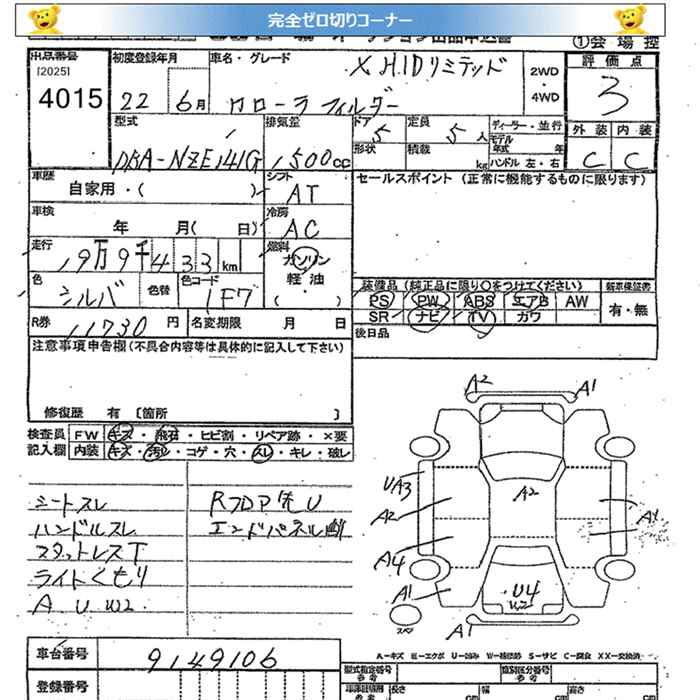 完全ゼロ切りコーナー
①会場控
出品番号
[2025]
4015
初度登録年月
22 6月
車名・グレード
X HIDリミテッド
カローラフィルダー
2WD
・
4WD
評価点
3
外装 内装
C C
型式
DBA-NZE141G
排気量
1500cc
ドア 5
定員 5人
形状
積載 kg
ディーラー・並行
モデル
年式 年
ハンドル 左・右
車歴
自家用・( )
シフト
AT
セールスポイント (正常に機能するものに限ります)
車検
年 月( 日)
冷房
AC
走行
19万9千433km
燃料
ガソリン
軽油
( )
色
シルバ
色替
色コード
1F7
装備品 (純正品に限り○をつけてください)
新車保証書
PS PW ABS エアB AW
有・無
SR ナビ TV カワ
R券
11730円
名変期限 月 日
後日品
注意事項申告欄(不具合内容等は具体的に記入して下さい)
修復歴 有 〔箇所 〕
検査員 FW キズ・飛石・ヒビ割・リペア跡・×要
記入欄 内装 キズ・汚れ・コゲ・穴・スレ・キレ・破レ
シートスレ
ハンドルスレ
スタットレスT
ライトくもり
A U W2
Rフロア先U
エンドパネル
A2 A1
UA3
A2
A2
A1
A4
A1
U4
W2
A1
A-キズ E-エクボ U-凹み W-補修跡 S-サビ C-腐食 XX-交換済
車台番号
9149106
登録番号
型式指定番号
参考
類別区分番号
参考
長さ cm
幅 cm
高さ cm